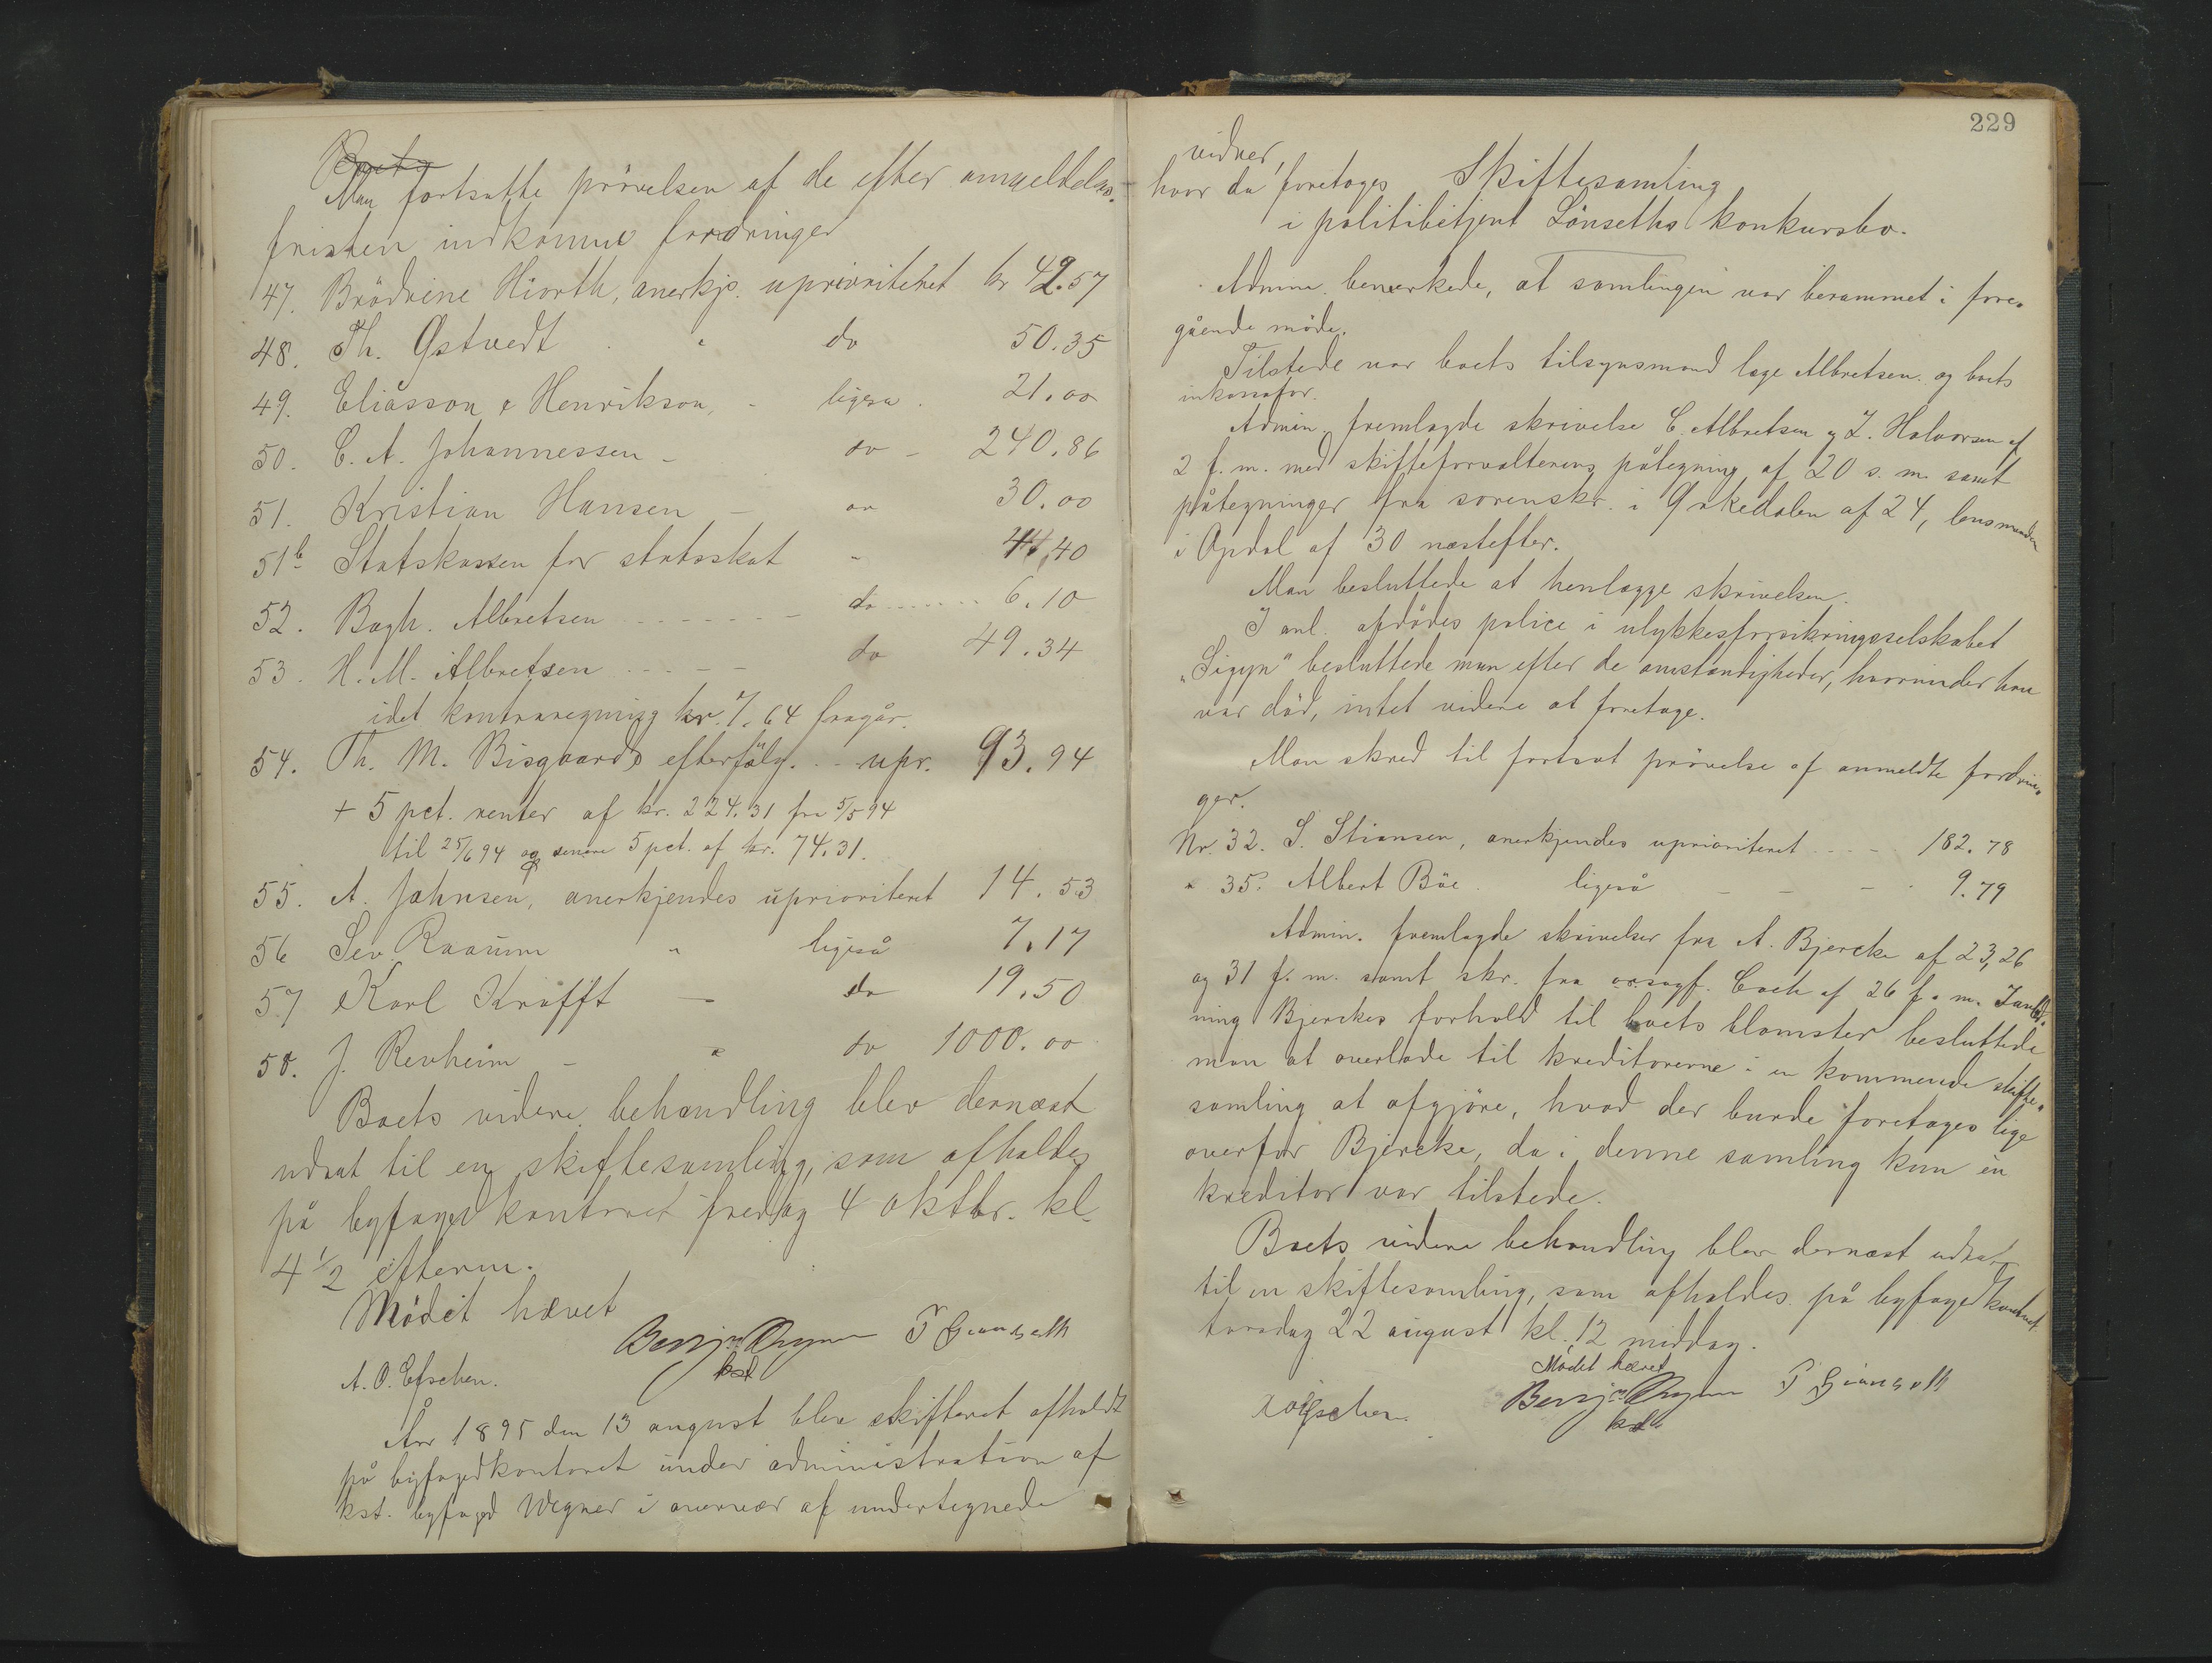 Boets
Man fortsatte prövelsen af de efter anmeldelses-
fristen indkomne fordringer
47. Brödrene Hiorth, anerkjs. uprioriteret kr 42.57
48. Th. Østvedt " do 50.35
49. Eliasson & Henrikson, - ligesa. 21.00
50. C. A. Johannessen - do - 240.86
51. Kristian Hansen - do 30.00
51b Statskassen for statsskat - 44,40
52. Bagh. Albretsen - do 6.10
53. H. M. Albretsen - do 49.34
idet kontraregning kr. 7.64 fragår.
54. Th. M. Bisgaards efterfölg. - upr. 93.94
+ 5 pct. renter af kr. 224.31 fra 5/5 94
til 25/6 94 og senere 5 pct. af kr. 74.31.
55. A. Johnsen, anerkjendes uprioriteret 14.53
56 Sev. Raaum " ligeså 7.17
57 Karl Krafft - do 19.50
58. J. Revheim - " do 1000.00
Boets videre behandling blev dernæst
udsat til en skiftesamling, som afholdes
på byfogedkontoret fredag 4 oktbr. kl.
4 1/2 efterm.
Mödet hævet
Benj. Wegner
kst
A. O. Efschen.
År 1895 den 13 august blev skifteret afholdt
på byfogedkontoret under administration af
kst. byfoged Wegner i overvær af undertegnede
229
vidner,
hvor da foretoges Skiftesamling
i politibetjent Lönseths konkursbo.
Admin. bemerkede, at samlingen var berammet i fore-
gående möde.
Tilstede var boets tilsynsmand læge Albretsen og boets
inkassator.
Admin. fremlagde skrivelse C. Albretsen og L. Halvorsen af
2 f. m. med skifteforvalterens påtegning af 20 s. m. samt
påtegninger fra sorenskr. i Orkedalen af 24, lensmanden
i Opdal af 30 næstefter.
Man besluttede at henlægge skrivelsen.
I anl. afdödes police i ulykkesforsikringsselskabet
"Sigyn" besluttede man efter de omstændigheder, hvorunder han
var död, intet videre at foretage.
Man skred til fortsat prövelse af anmeldte fordrin-
ger.
Nr. 32. S. Stiansen, anerkjendes uprioriteret - - 182.78
" 35. Albert Böe. ligeså - - - 9.79
Admin. fremlagde skrivelser fra A. Bjercke af 23, 26
og 31 f. m. samt skr. fra orsagf. Coch af 26 f. m. I anled-
ning Bjerckes forhold til boets blomster besluttede
man at overlade til kreditorerne i en kommende skifte-
samling at afgjöre, hvad der burde foretages lige
overfor Bjercke, da i denne samling kun én
kreditor var tilstede.
Boets videre behandling blev dernæst udsat
til en skiftesamling, som afholdes på byfogedkontoret
torsdag 22 august kl. 12 middag.
Mödet hævet
Benj. Wegner
kst